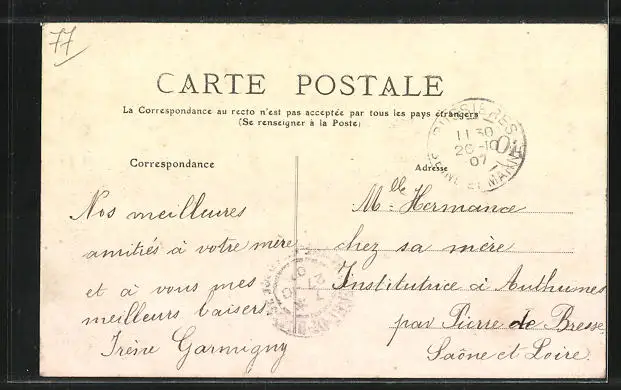 77
CARTE POSTALE
La Correspondance au recto n'est pas acceptée par tous les pays étrangers
(Se renseigner à la Poste)
Correspondance
Adresse
BUSSIERES
11 30
26 -10
07
SEINE ET MARNE
Nos meilleures
amitiés à votre mère
et à vous mes
meilleurs baisers
Irène Garmigny
Mlle Hermance
chez sa mère
Institutrice à Authumes
par Pierre de Bresse
Saône et Loire.